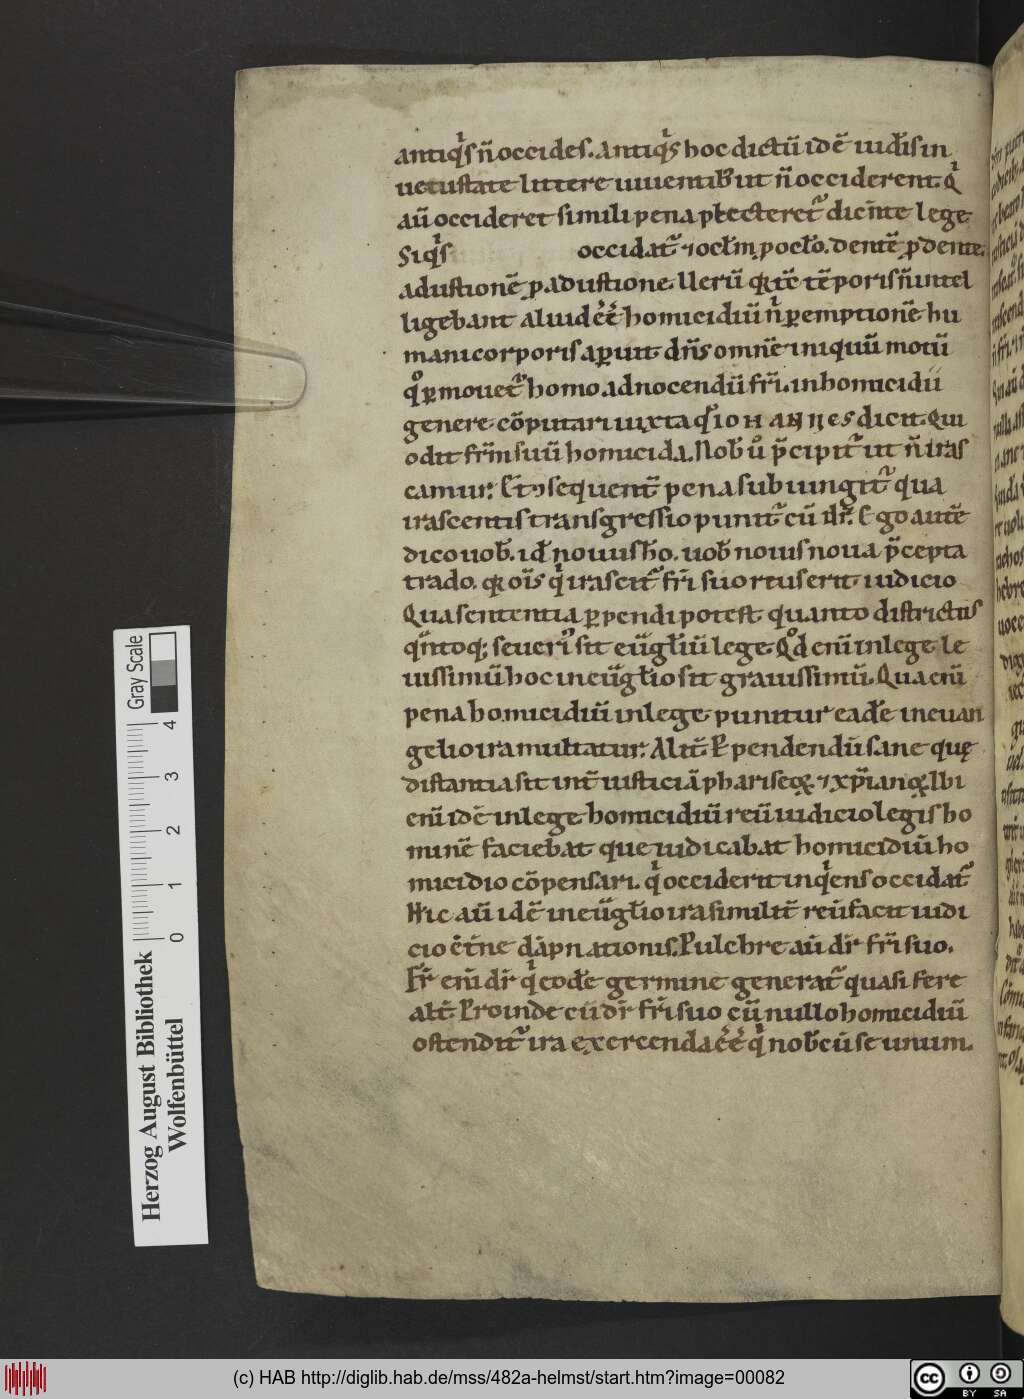 antiqͥs n̄ occides. Antiqͥs hoc dictū idē iudeis in
uetustate littere uiuentib; ut n̄ occiderent. Qͥ
aū occideret simili pena plecteret᷑ dicente lege.
Siqͥs occidat᷑ ⁊ oclm̄ ꝓ oclo. dentē ꝓ dente.
adustionē ꝓ adustione. Uerū qꝛ tc̄ tēporis n̄ intel
ligebant aliud eē homicidiū nͥ ꝑemptionē hu
mani corporis aꝑuit dn̄s omnē iniquū motū
qͦ ꝑmouet᷑ homo. ad nocendū fri. in homicidii
genere cōputari iuxta qͦ IOHANNES dicit. Qui
odit frm̄ suū homicida. Nob̄ ū p̄cipit᷑ ut n̄ iras
camur. Et ꝯsequent̄ pena subiungit᷑ qua
irascentis transgressio punit᷑ cū dr̄. Ego autē
dico uob̄. id ̄ nouus hō. uob̄ nouis noua p̄cepta
trado. qꝛ ois̄ qͥ irascit᷑ fri suo reus erit iudicio
Qua sententia ꝑpendi potest quanto districtius
qn̄toq; seueriꝰ sit eūgliū lege. Qd enī in lege le
uissimū hoc in eūglio sit grauissimū. Qua enī
pena homicidiū in lege punitur eadē in euan
gelio ira multatur. Alit̄. Perpendendū sane quę
distantia sit int̄ iusticiā phariseoꝝ ⁊ xp̄ianoꝝ. Ibi
enī idē in lege homicidiū reū iudicio legis ho
minē faciebat que iudicabat homicidiū ho
micidio cōpensari. qͥ occiderit inqͥens occidat᷑
Hic aū idē in eūglio ira similit̄ reū facit iudi
cio etn̄e dāpnationis. Pulchre aū dr̄ fri suo.
Fr̄ enī dr̄ qͥ eodē germine generat᷑ quasi fere
alt̄. Proinde cū dr̄ fri suo cū nullo homicidiū
ostendit᷑ ira exercenda eē qͥ nob̄cū se unum.
Gray Scale
4 3 2 1 0
Herzog August Bibliothek
Wolfenbüttel
(c) HAB http://diglib.hab.de/mss/482a-helmst/start.htm?image=00082
cc BY SA